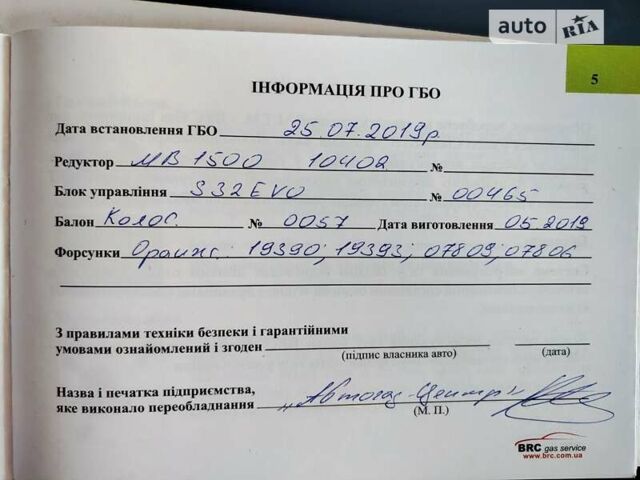 auto RIA
5
ІНФОРМАЦІЯ ПРО ГБО
Дата встановлення ГБО 25 07.2019р
Редуктор МВ 1500 10402 №
Блок управління S32EVO № 00465
Балон Колос. № 0057 Дата виготовлення 05.2019
Форсунки Оранж: 19390; 19393; 07809; 07806
З правилами техніки безпеки і гарантійними
умовами ознайомлений і згоден
(підпис власника авто) (дата)
Назва і печатка підприємства,
яке виконало переобладнання „Автогаз-Центр"
(М. П.)
BRC gas service
www.brc.com.ua